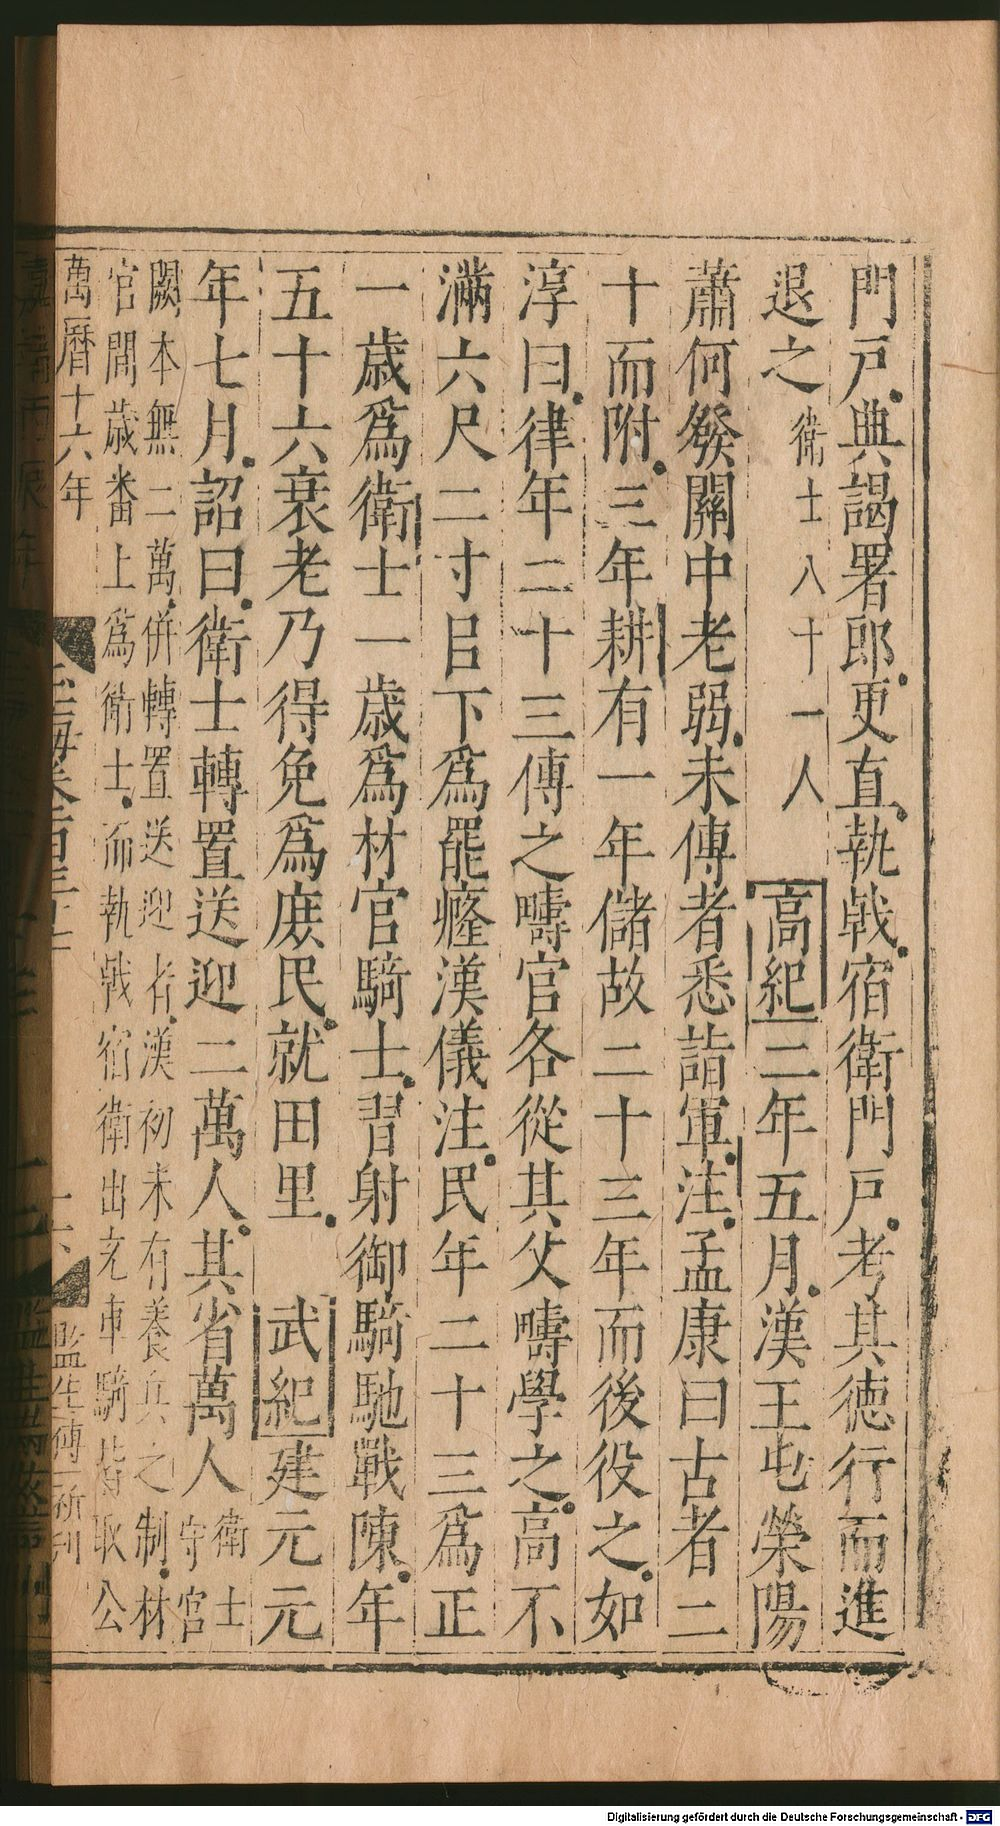 門戸典謁署郎更直執戟宿衛門戸考其德行而進
退之衛士八十一人 高紀二年五月漢王屯榮陽
蕭何發關中老弱未傳者悉詣軍注孟康曰古者二
十而附三年耕有一年儲故二十三年而後役之如
淳曰律年二十三傳之疇官各從其父疇學之高不
滿六尺二寸㠯下爲罷癃漢儀注民年二十三爲正
一歲爲衛士一歲爲材官騎士習射御騎馳戰陳年
五十六衰老乃得免爲庶民就田里 武紀建元元
年七月詔曰衛士轉置送迎二萬人其省萬人衛士
守宮
闕本無二萬併轉置送迎者漢初未有養兵之制材
官閒歲番上爲衛士而執戟宿衛出充車騎皆取公
萬曆十六年 玉海卷一百三十七 十六 監生傅一新刊
Digitalisierung gefördert durch die Deutsche Forschungsgemeinschaft - DFG